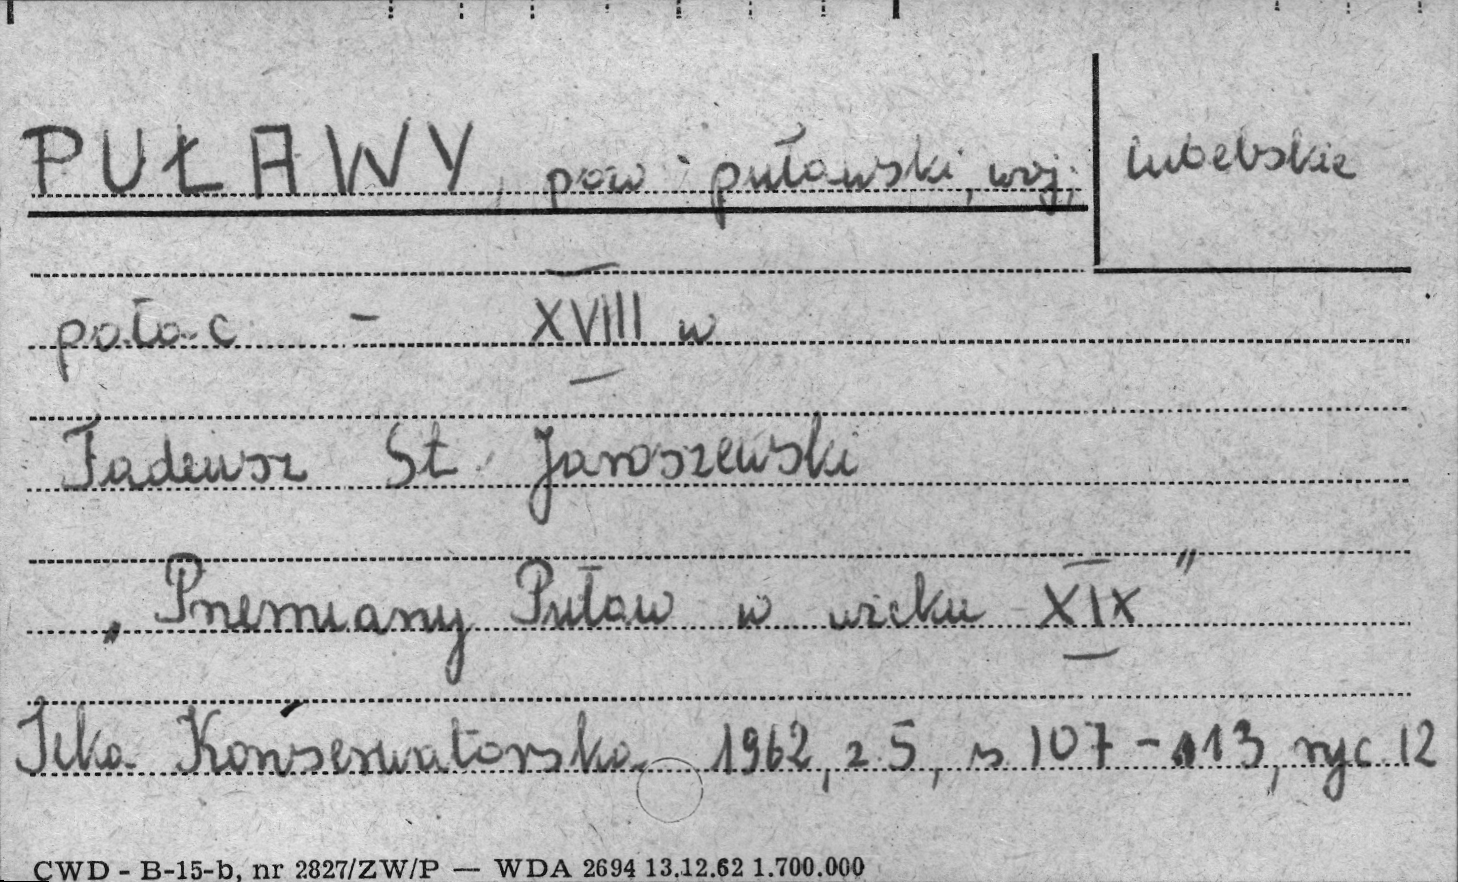 PUŁAWY, pow. puławski, woj, lubelskie
pałac - XVIII w
Tadeusz St. Jaroszewski
„Przemiany Puław w wieku XIX"
Teka Konserwatorska 1962, z 5, s 107-113, ryc 12
CWD - B-15-b, nr 2827/ZW/P — WDA 2694 13.12.62 1.700.000